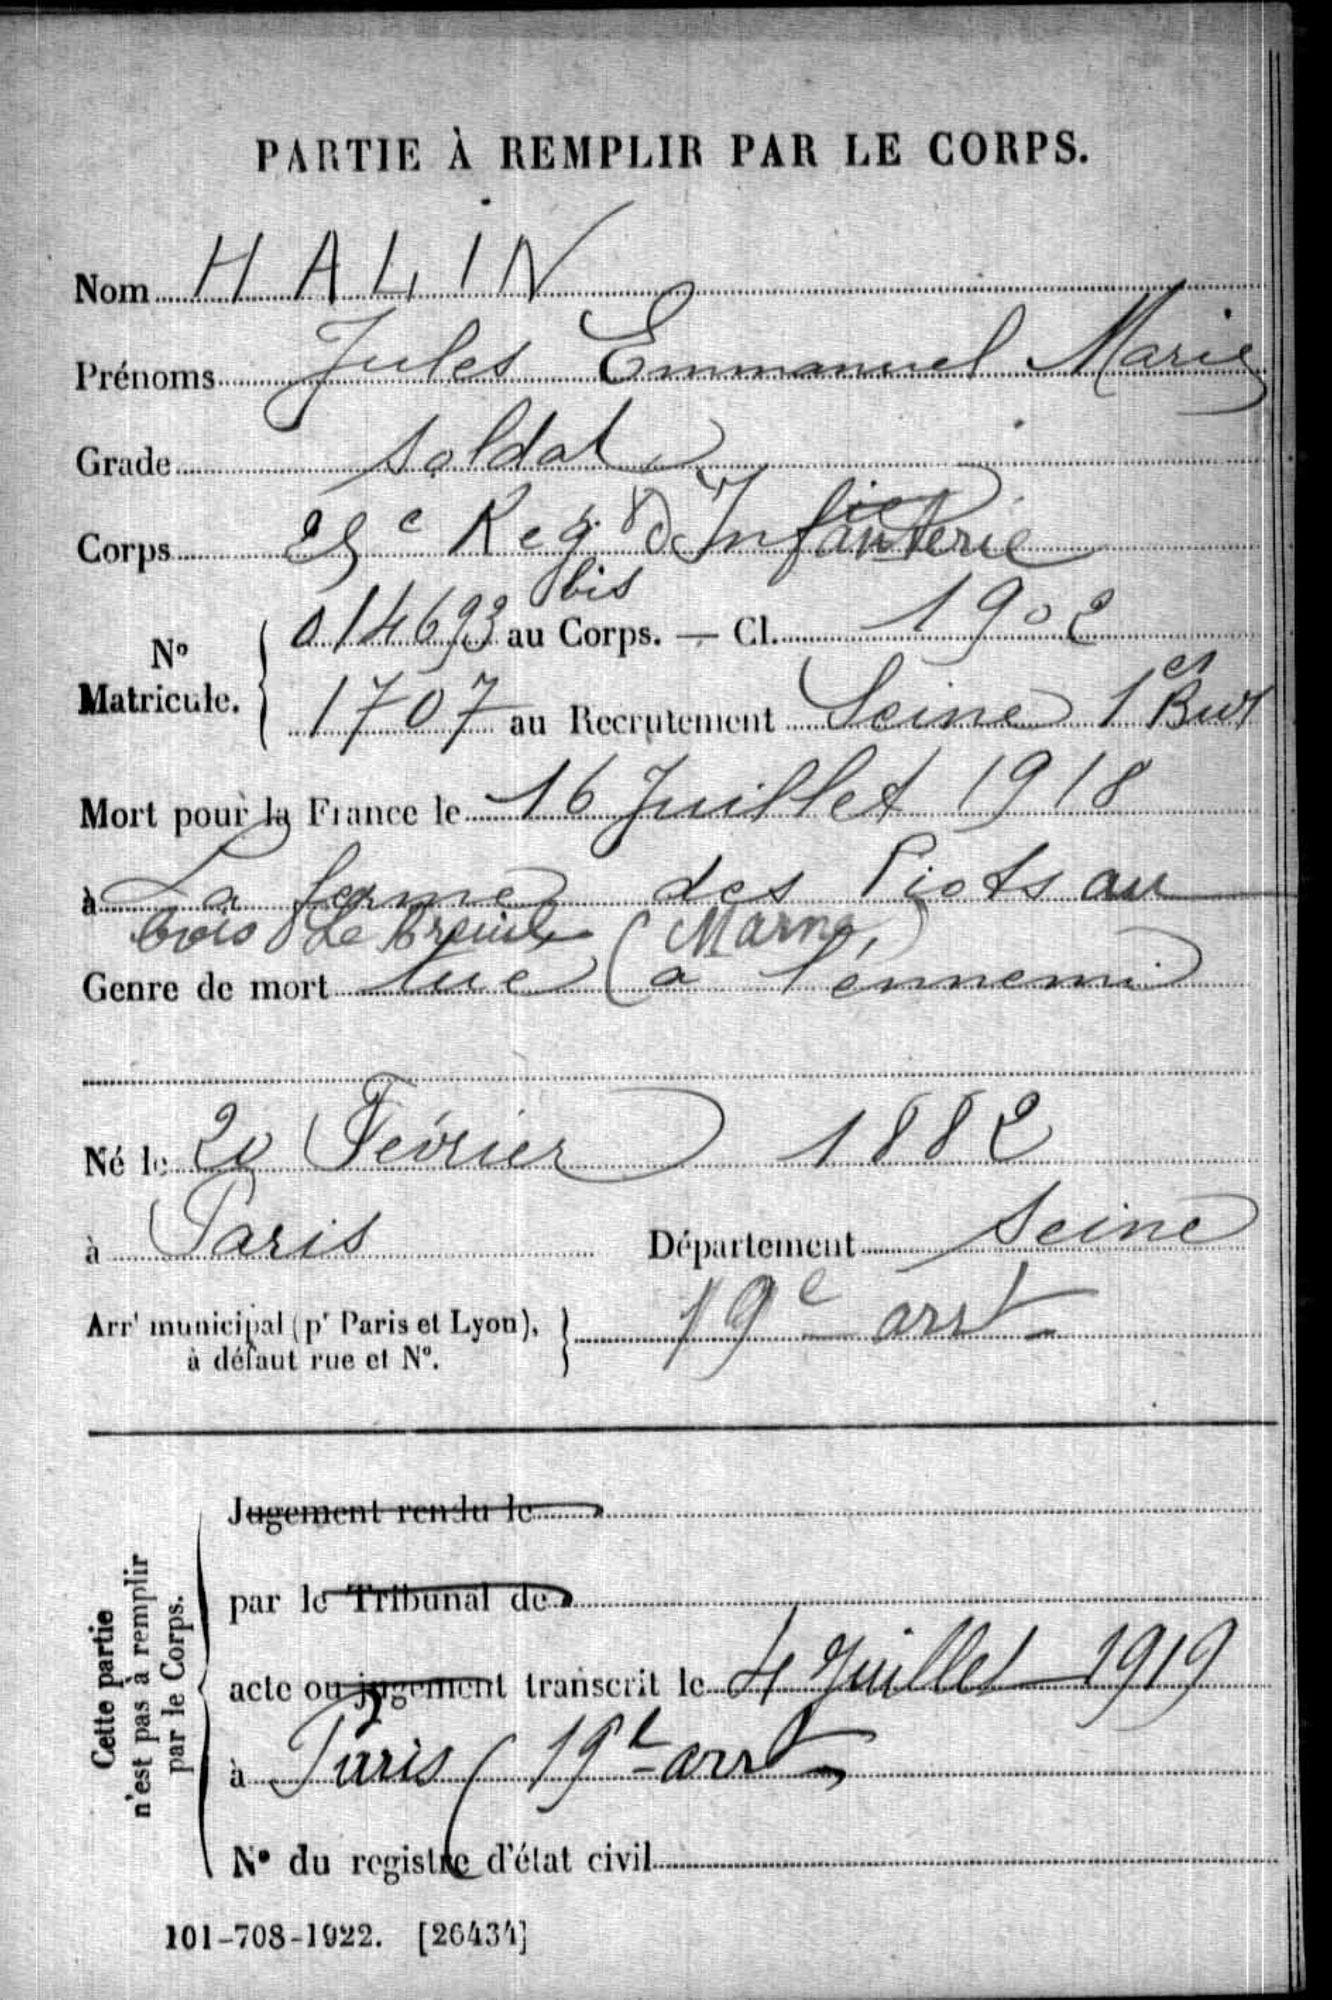 PARTIE À REMPLIR PAR LE CORPS.
Nom HALIN
Prénoms Jules Emmanuel Marie
Grade Soldat
Corps 25e Reg. d'Infanterie
bis
014693 au Corps. — Cl. 1902
No Matricule.
1707 au Recrutement Seine 1er Bur
Mort pour la France le 16 Juillet 1918
à La ferme des Piots au
bois Le Breuil (Marne)
Genre de mort tué à l'ennemi
Né le 20 Février 1882
à Paris Département Seine
Arrt municipal (pr Paris et Lyon), à défaut rue et No. 19e arrt
Cette partie n'est pas à remplir par le Corps.
Jugement rendu le
par le Tribunal de
acte ou jugement transcrit le 4 Juillet 1919
à Paris (19e arrt
No du registre d'état civil
101-708-1922. [26434]